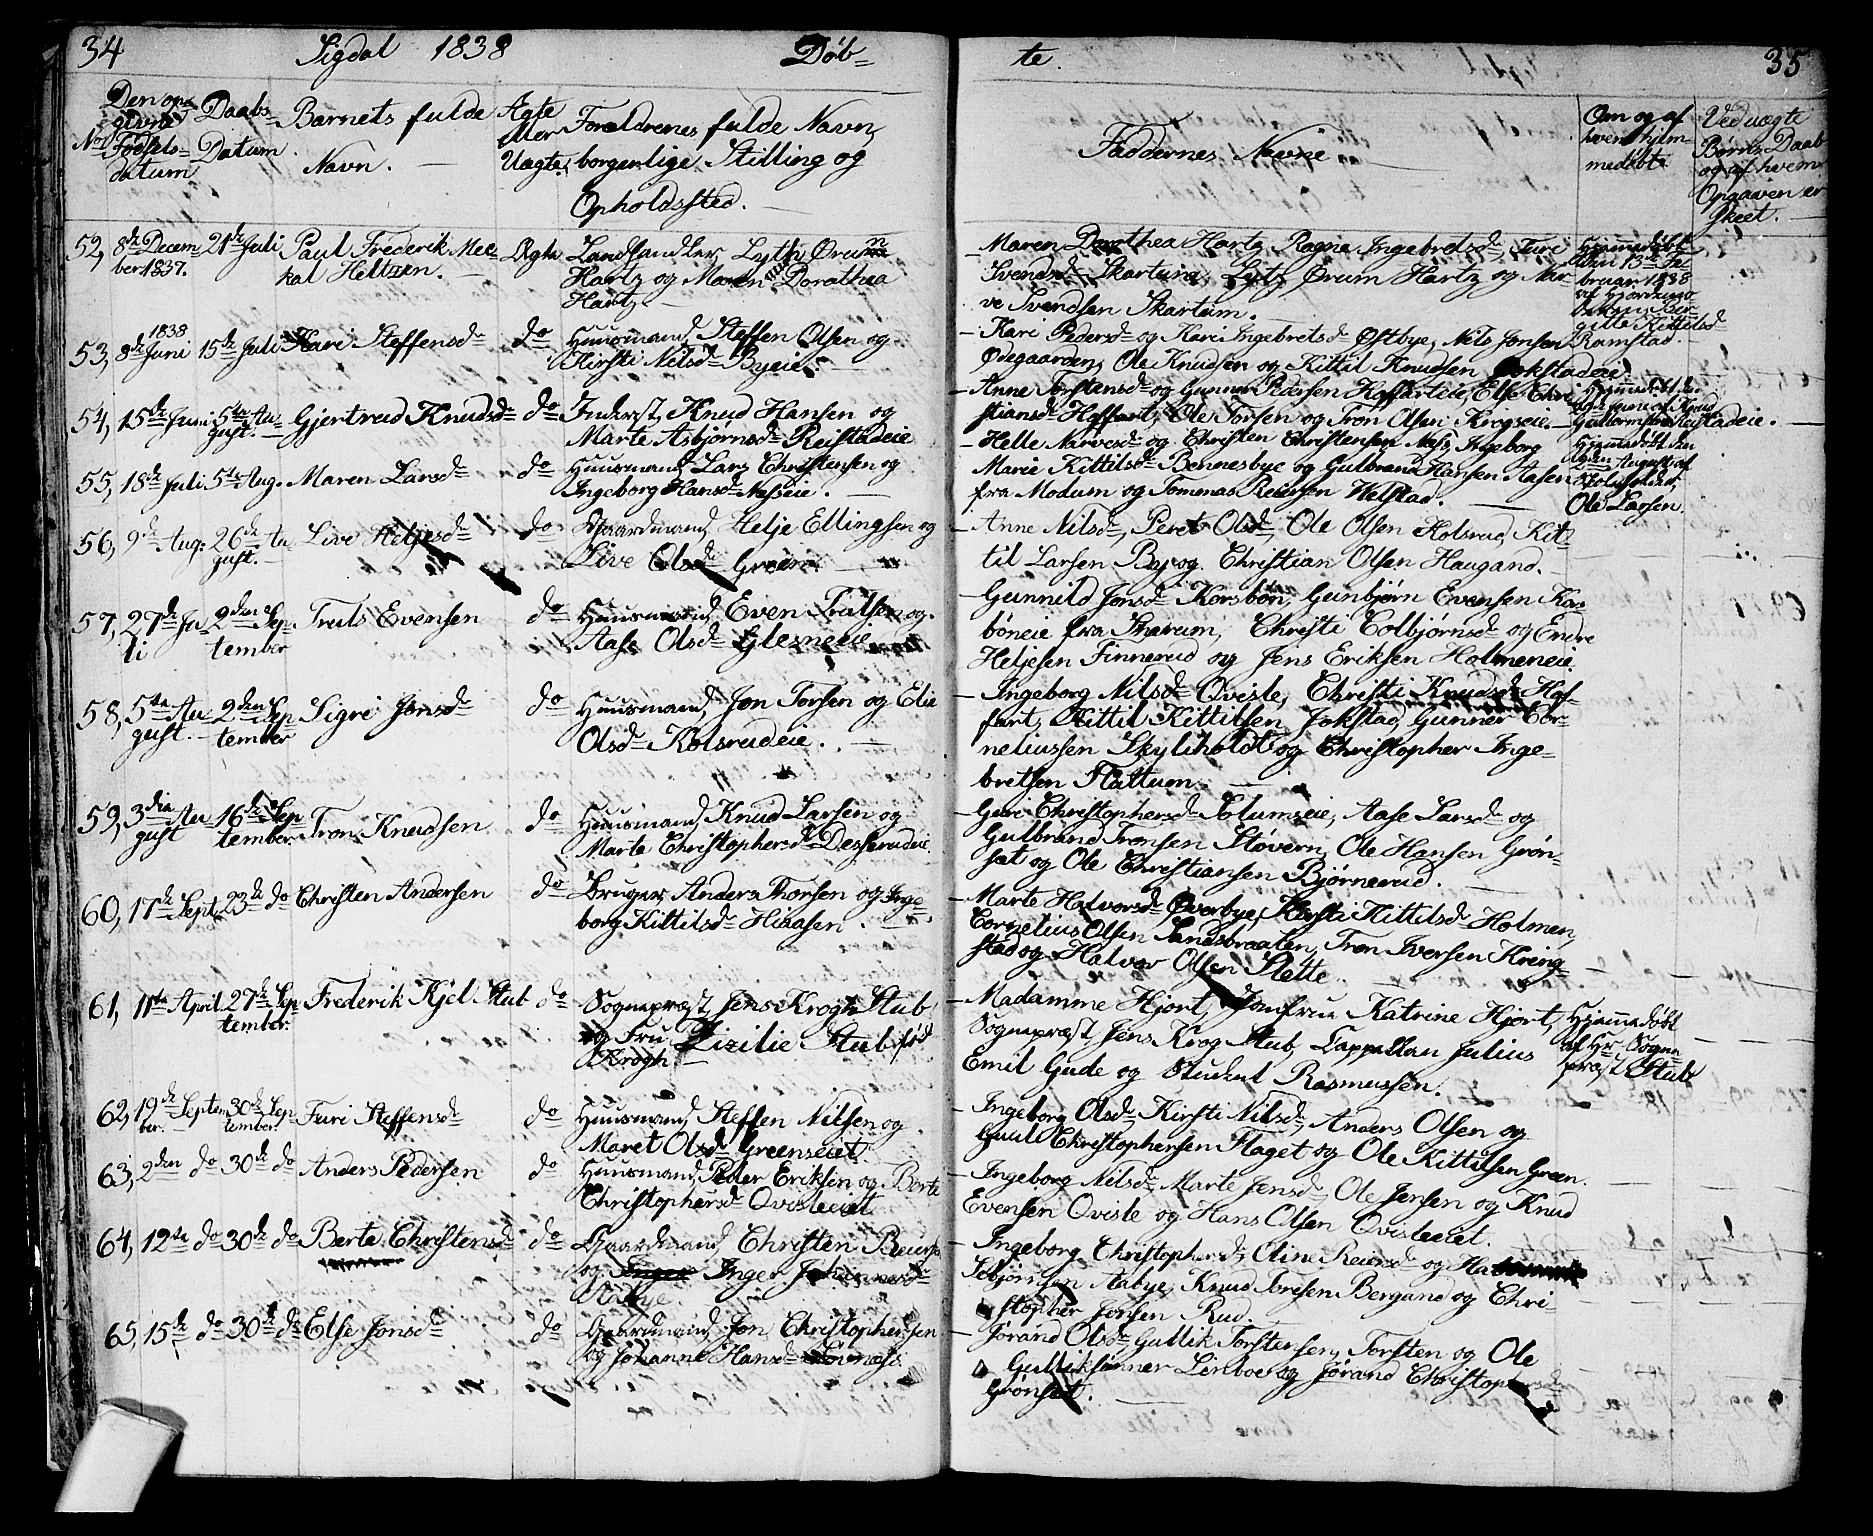 34 Sigdal 1838 Døb-
No Den opgivne Fødsels- datum
Daabs- Datum
Barnets fulde Navn.
Ægte eller Uægte.
Foreldrenes fulde Navn, borgerlige Stilling og Opholdssted.
52, 8de Decem- 21de Juli Paul Frederik Mec- Ægte Landhandler, Lyth Ørum
ber 1837. kal Heltzen. Hartz og Maren Dorathea
Hartz
53, 1838 8de Juni 15de Juli Kari Steffensd do Huusmand, Steffen Olsen og
Kirsti Nilsd Byeeie.
54, 15de Juni 5te Au- Gjertrud Knudsd do Inderst, Knud Hansen og
gust. Marte Asbjørnsd Reistadeie
55, 18de Juli 5te Aug. Maren Larsd do Huusmand, Lars Christensen og
Ingeborg Hansd Næsseie.
56, 9de Aug. 26de Au- Live Heljesd do Gaardmand, Helje Ellingsen og
gust. Live Olsd Green.
57, 27de Ju- 2den Sep- Truls Evensen do Huusmand, Even Trulsen og
li tember Aase Olsd Glesneeie
58, 5te Au- 2den Sep- Sigri Jonsd do Huusmand, Jon Torsen og Elie
gust. tember Olsd Kolsrudeie.
59, 3die Au- 16de Sep- Tron Knudsen do Huusmand, Knud Larsen og
gust tember. Marte Christophersd Desserudeie
60, 17de Sept. 23de do Christen Andersen do Bruger, Anders Thorsen og Inge-
borg Kittilsd Haasen.
61, 11te April 27de Sep- Frederik Kjel Stub do Sognepræst, Jens Krogh Stub
tember. og Fru Zizilie Stub fød
Krogh
62, 19de Septem- 30de Sep- Turi Steffensd do Huusmand, Steffen Nilsen og
ber. tember. Maret Olsd Greenseiet
63, 2den do 30de do Anders Pedersen do Huusmand, Peder Eriksen og Berte
Christophersd Qvisleeiet
64, 12te do 30de do Berte Christensd do Gaardmand, Christen Reiers
og Inger
Aabye.
65, 15de do 30de do Else Jonsd do Gaardmand, Jon Christophersen
og Johanne Hansd
te. 35
Faddernes Navne
Om og af hvem hjem- medøbt.
Ved uægte Børns Daab og af hvem Opgaven er Skeet.
Maren Dorothea Hartz, Ragne Ingebretsd, Turi
Svendsd Skartum, Lytz Ørum Hartz og Nar-
ve Svendsen Skartum.
Hjemmedøbt den 13de Fe- bruar 1838 af Kittilsd Ramstad.
Kari Pedersd og Kari Ingebretsd Østbye, Nils Jonsen
Ødegaarden, Ole Knudsen og Kittil Knudsen Jokstadeie.
Anne Torstensd og Gunner Pedersen Hoffarteie, Else Chri-
stiansd Hoffart, Ole Torsen og Tron Olsen Krogseie.
Hjemmedøbt den
Helle Narvesd og Christen Christensen Næss, Ingeborg
Marie Kittilsd Bennesbye og Gulbrand Hansen Aasen
fra Modum og Tommas Reiersen Welstad.
Hjemmedøbt den August af Ole Larsen.
Anne Nilsd, Peret Olsd, Ole Olsen Kolsrud, Kit-
til Larsen By og Christian Olsen Haugand.
Gunnild Jonsd Korsbøn, Gunbjørn Evensen Kors-
bøneie fra Snarum, Christi Colbjørnsd og Endre
Heljesen Finnerud og Jens Eriksen Holmeneie.
Ingeborg Nilsd Qvisle, Christi Knudsd Hof-
fart, Kittil Kittilsen Jokstad, Gunner Cor-
neliussen Skyliholdt og Christopher Inge-
bretsen Flattum
Guri Christophersd Solumseie, Aase Larsd og
Gulbrand Tronsen Støvern, Ole Hansen Grøn-
sæt og Ole Christiansen Bjørnerud.
Marte Halvorsd Øverbye, Kirsti Kittilsd Holmen,
Cornelius Olsen Sandsbraaten, Tron Iversen Kring-
stad og Halvor Olsen Slette
Madamme Hjort, Jomfrue Katrine Hjort,
Sognepræst Jens Krog Stub, Cappellan Julius
Emil Gude og Student Rasmussen.
Hjemmedøbt af Hr Sogne- præst Stub
Ingeborg Olsd, Kirsti Nilsd, Anders Olsen og
Guul Christophersen Flaget og Ole Kittilsen Green.
Ingeborg Nilsd, Marte Jensd, Ole Jensen og Knud
Evensen Qvisle og Hans Olsen Qvisleeiet.
Ingeborg Christophersd, Eline Reiersd og
Aabye, Knud Toresen Bergand og Chri-
stopher Jonsen Rud.
Jørand Olsd, Gullik Torstensen, Torsten og Ole
Gulliksønner Linboe og Jørand Christophersd
Grønset.